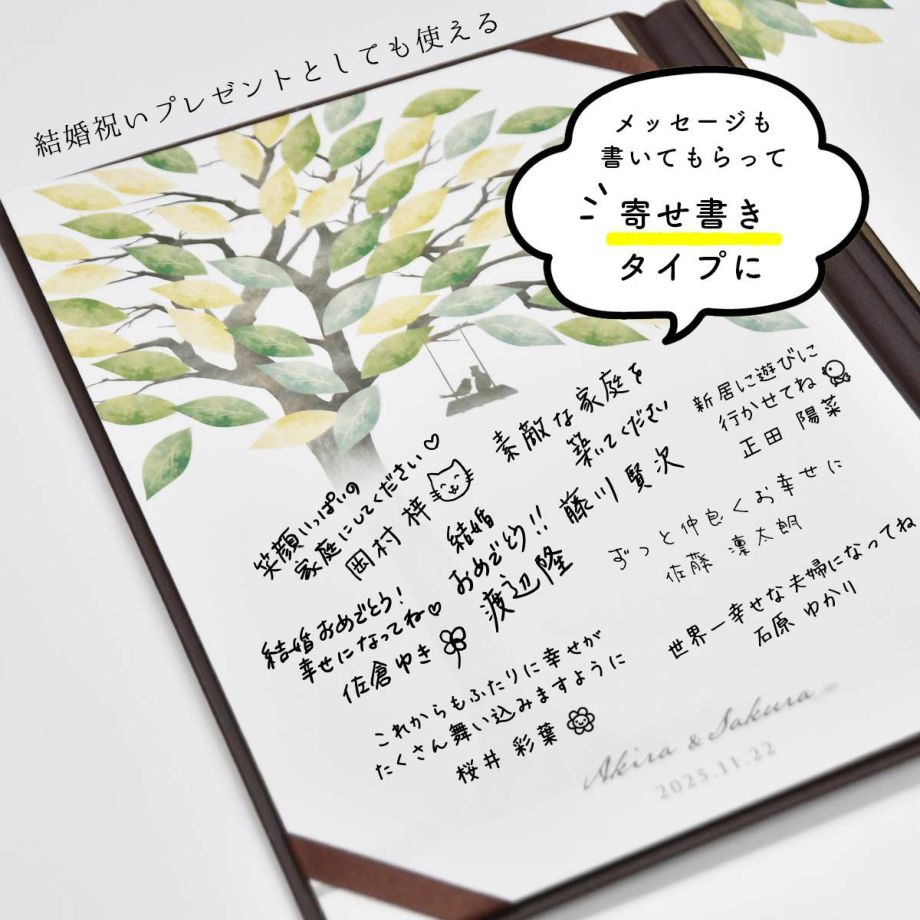 結婚祝いプレゼントとしても使える
メッセージも
書いてもらって
寄せ書き
タイプに
笑顔いっぱいの
家庭にしてください♡
岡村 梓
素敵な家庭を
築いてください
藤川 賢次
新居に遊びに
行かせてね
正田 陽菜
結婚
おめでとう!!
渡辺 隆
ずっと仲良くお幸せに
佐藤 凜太朗
結婚おめでとう!
幸せになってね♡
佐倉 ゆき
世界一幸せな夫婦になってね
石原 ゆかり
これからもふたりに幸せが
たくさん舞い込みますように
桜井 彩葉
Akira & Sakura
2025.11.22